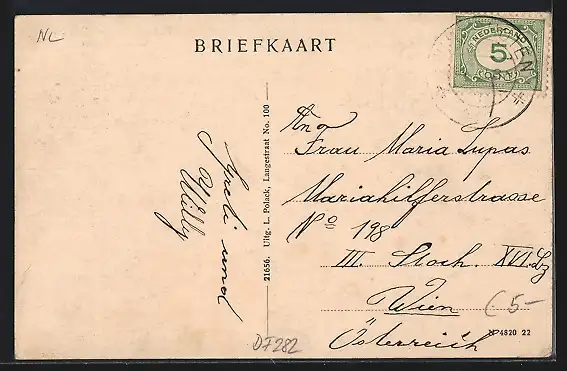 NL
BRIEFKAART
NEDERLAND
5
CENT
An
Frau Maria Lupas
Mariahilferstrasse
No 198
III. Stock. XVI. Lz
Wien
Österreich
und
Willy
21656. Uitg. L. Polack, Langestraat No. 100
C5-
DF282
4820 22